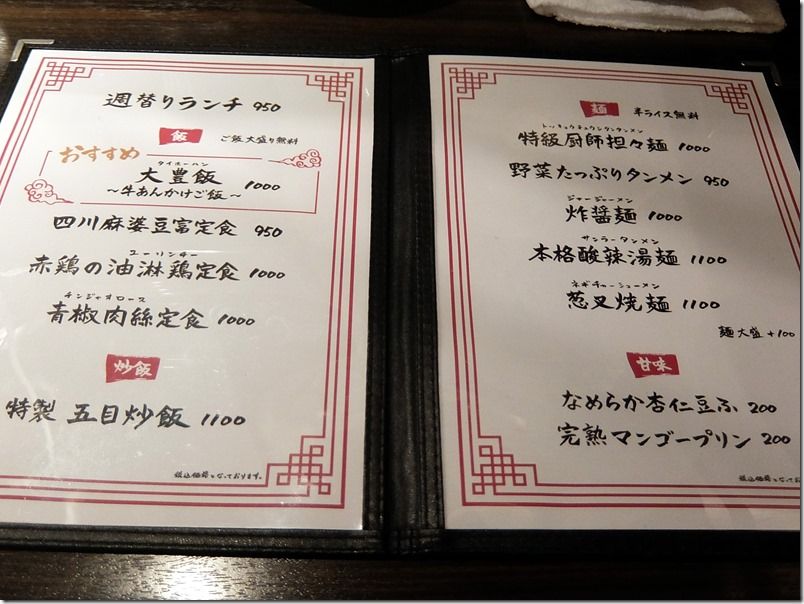 週替りランチ 950
飯 ご飯大盛り無料
おすすめ
タイホーハン
大豊飯 1000
～牛あんかけご飯～
四川麻婆豆富定食 950
ユーリンチー
赤鶏の油淋鶏定食 1000
チンジャオロース
青椒肉絲定食 1000
炒飯
特製 五目炒飯 1100
税込価格となっております。
麺 半ライス無料
特級厨師担々麺 1000
野菜たっぷりタンメン 950
ジャージャーメン
炸醤麺 1000
サンラータンメン
本格酸辣湯麺 1100
ネギチャーシューメン
葱叉焼麺 1100
麺大盛 +100
甘味
なめらか杏仁豆ふ 200
完熟マンゴープリン 200
税込価格となってお